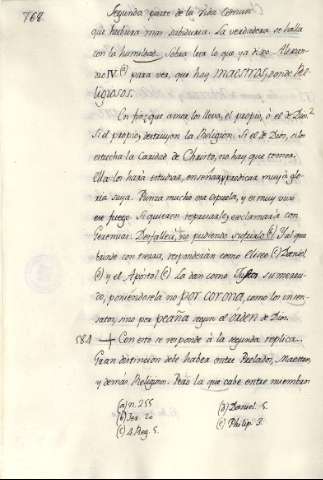 768.
Segunda parte de la Vida Comun
que hechura mas sabiduria. La verdadera se halla
con la humildad. Sobra leer lo que ya dexo Alexan-
IV. (a) para ver, que hay maestros, donde Re-
ligiosos.
En fin; que amor los lleva, el propio, ò el de Dios?
Si el propio, destruyen la Religion. Si el de Dios, si los
estrecha la Caridad de Christo, no hay que temer.
Ella los hará estudiar, enseñar, y predicar muy à glo-
ria suya. Punza mucho esa espuela, y es muy vivo
ese fuego. Si quieren represarle, exclamarán con
Geremias: Defallecí, no pudiendo sufrirlo (b) Si los
brindan con rentas, responderán como Eliseo (c) Daniel
(d) y el Apóstol (e) la dan como justa su
poniendosela no por corona, como los insen-
satos, sino por peaña segun el orden de Dios.
584 Con esto se responde à la segunda replica.
Gran distincion debe haber entre Prelados, Maestros,
y demas Religion. Pero la que cabe entre miembros
(a) n. 255
(b) Jer. 20
(c) 4. Reg. 5.
(d) Daniel. 5.
(e) Philip. 3.